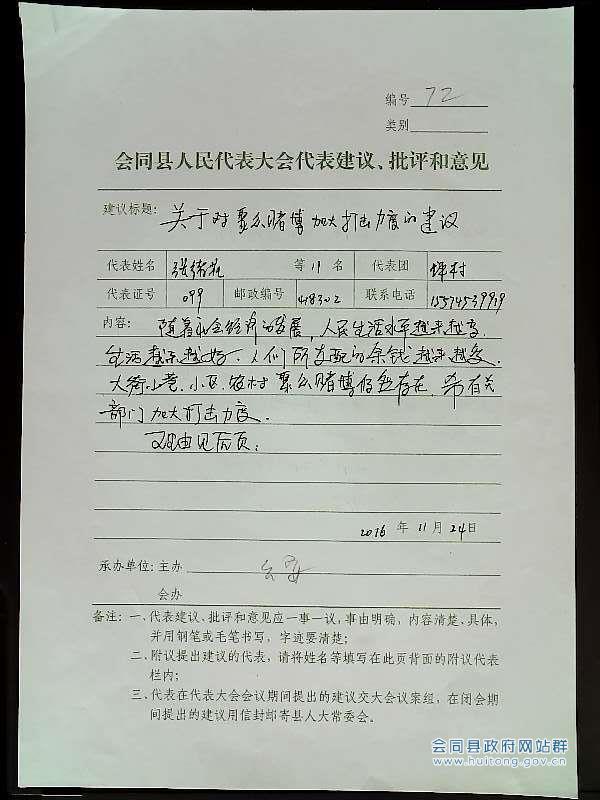 编号 72
类别
会同县人民代表大会代表建议、批评和意见
建议标题: 关于对聚众赌博加大打击力度的建议
代表姓名 张绪 等 11 名 代表团 坪村
代表证号 099 邮政编号 418302 联系电话 15574539919
内容: 随着社会经济的发展,人民生活水平越来越高
生活越来越好.人们所支配的余钱越来越多.
大街小巷.小区 农村聚众赌博仍然存在.希有关
部门加大打击力度.
理由见后页:
2016 年 11 月 24 日
承办单位: 主办 公安
会办
备注: 一、代表建议、批评和意见应一事一议,事由明确,内容清楚、具体,
并用钢笔或毛笔书写,字迹要清楚;
二、附议提出建议的代表,请将姓名等填写在此页背面的附议代表
栏内;
三、代表在代表大会会议期间提出的建议交大会议案组,在闭会期
间提出的建议用信封邮寄县人大常委会。
会同县政府网站群
www.huitong.gov.cn